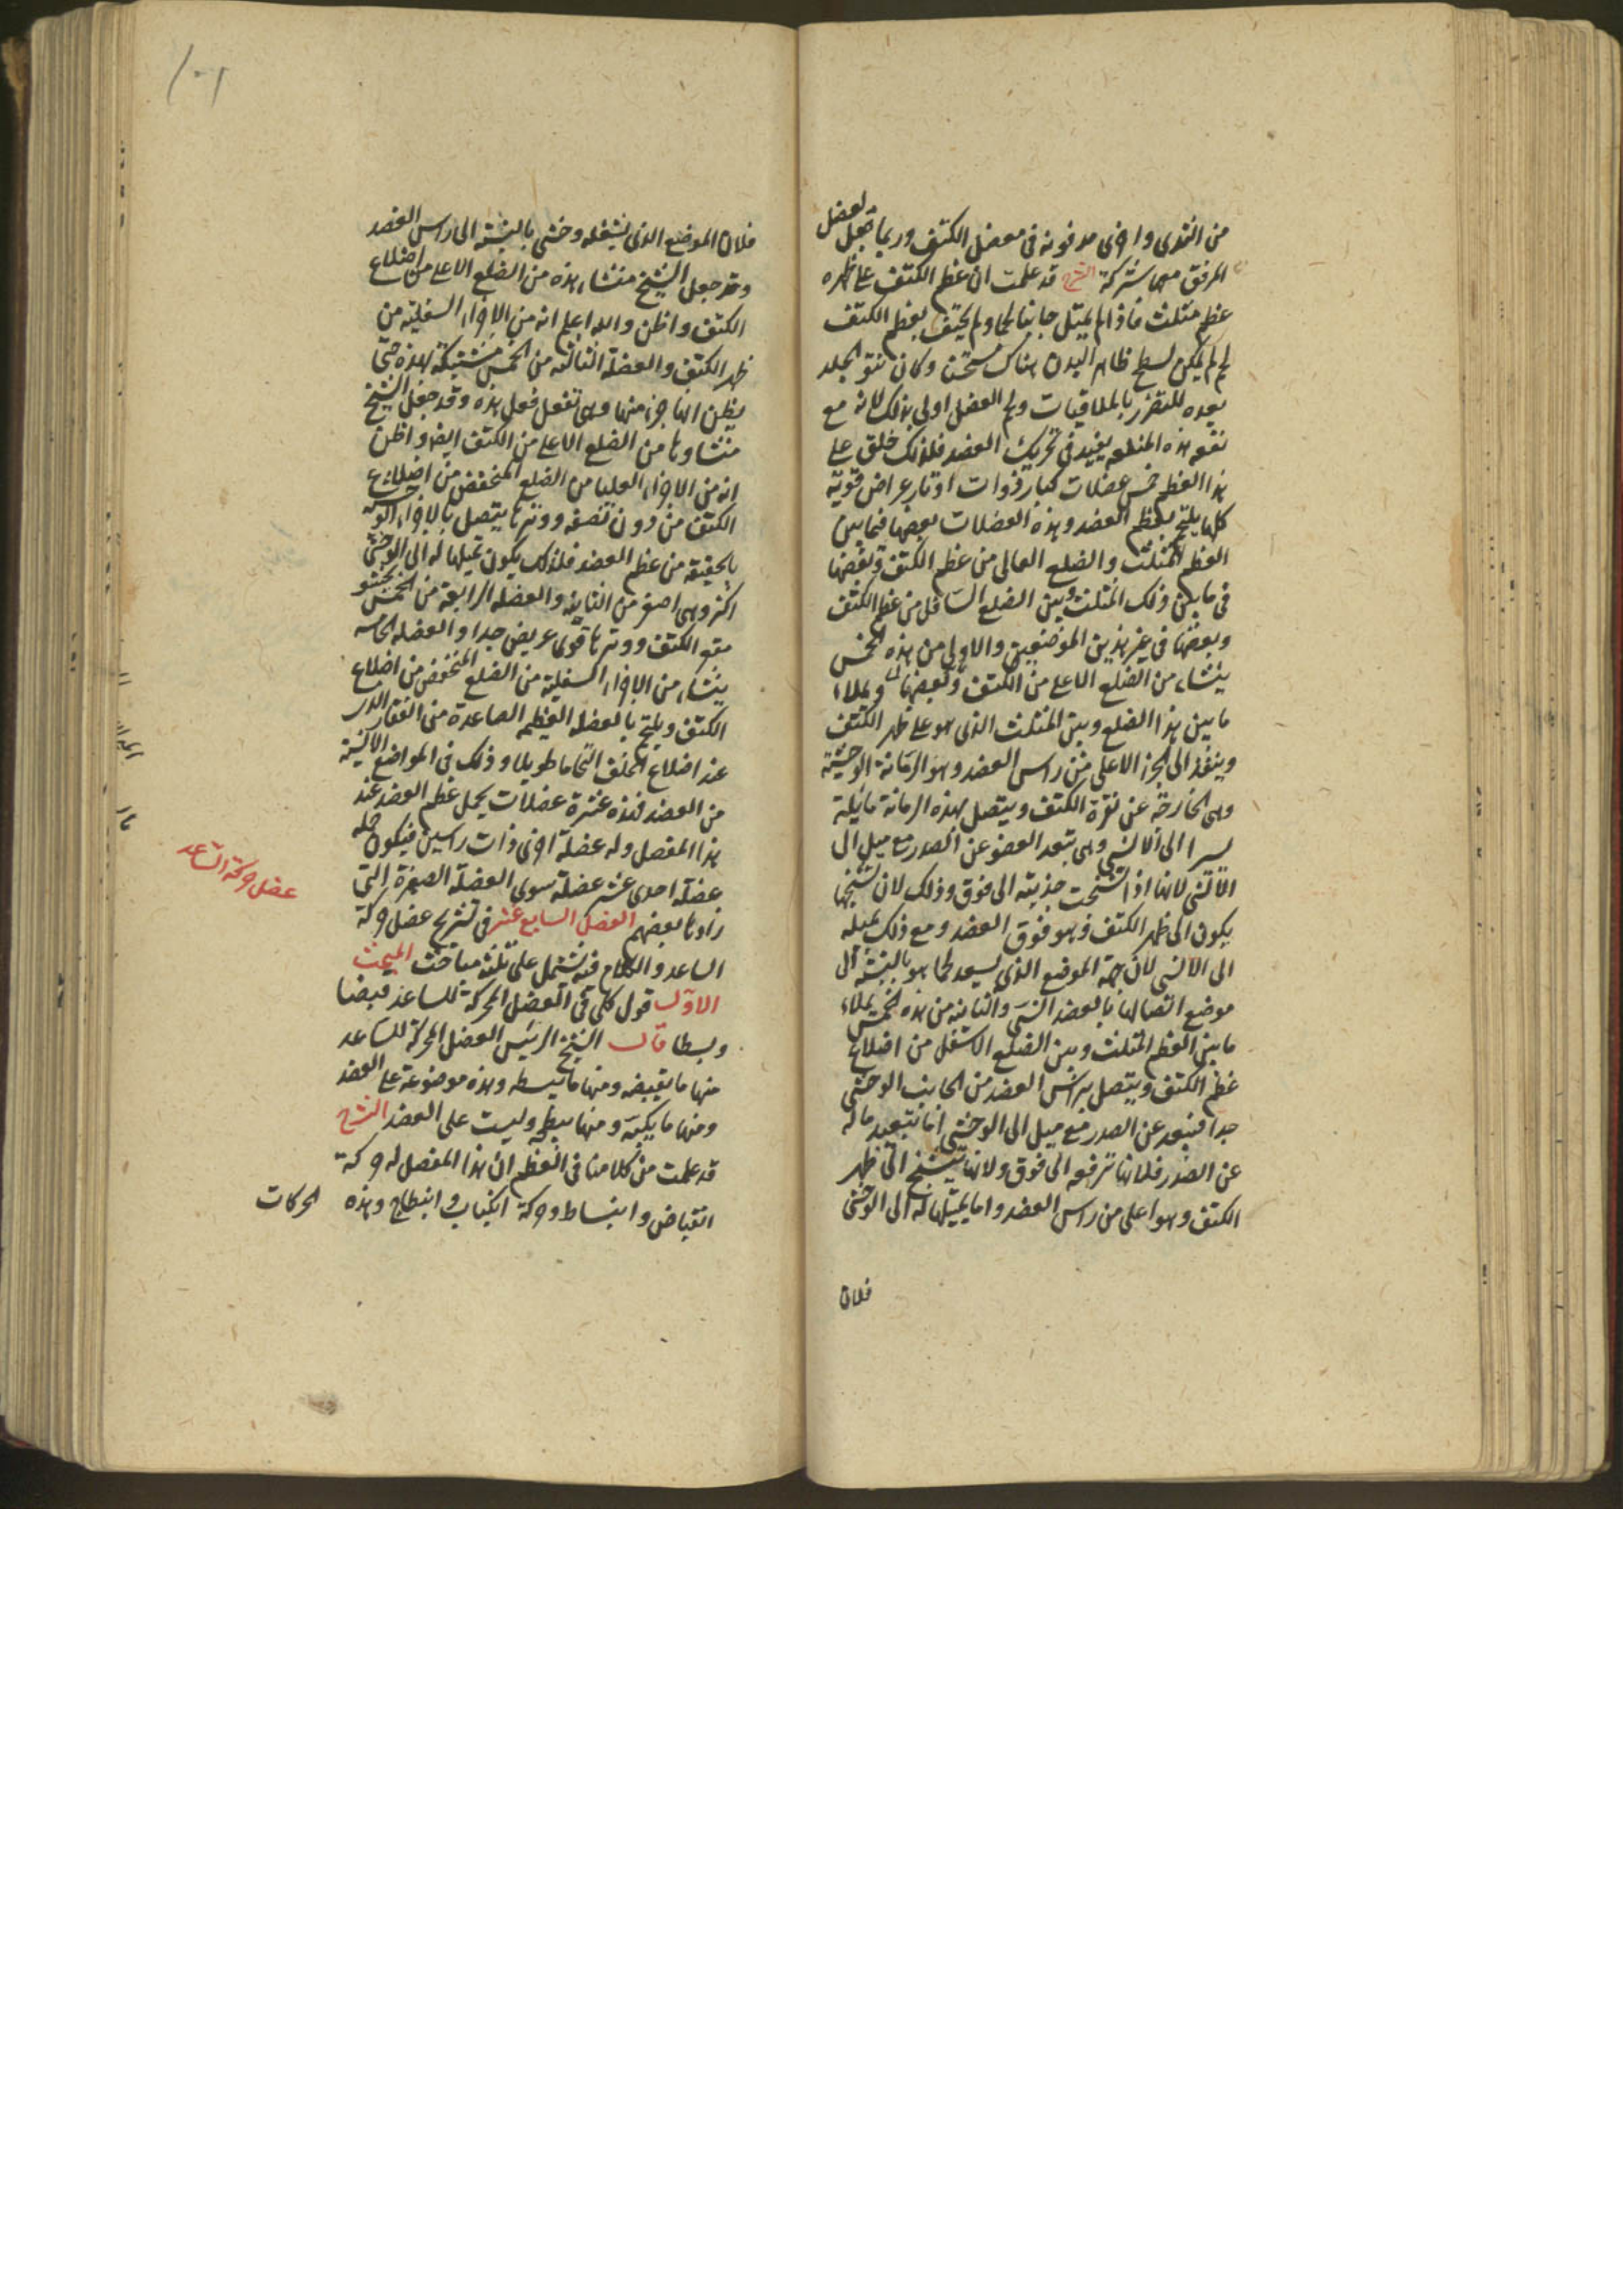 من الثدى واخرى مدفونة فى مفصل الكتف وربما جعل لعضل
المرفق معها شركة الشرح قد علمت ان عظم الكتف على ظهره
عظم مثلث فاذا لم يمتل جانباه لحما ولم يحتف بعظم الكتف
لحم لم يكن لسطح ظاهر البدن هناك مستحسنا وكان نتو الجلد
يعده للتضرر بالملاقيات ولحم العضل اولى بذلك لانه مع
نفعه هذه المنفعه يفيد فى تحريك العضد فلذلك خلق على
هذا العظم خمس عضلات كبار ذوات اوتار عراض قوية
كلها يلتحم بعظم العضد وهذه العضلات بعضها فيما بين
العظم المثلث والضلع العالى من عظم الكتف وبعضها
فى ما بين ذلك المثلث وبين الضلع السافل من عظم الكتف
وبعضها فى غير هذين الموضعين والاولى من هذه الخمس
ينشاء من الضلع الاعلى من الكتف وبعضها ويملاء
ما بين هذا الضلع وبين المثلث الذى هو على ظهر الكتف
وينفذ الى الجزء الاعلى من راس العضد وهو الرمانة الوحشية
وهى الخارجة عن نقرة الكتف ويتصل بهذه الرمانة مائلة
يسيرا الى الانسى وهى تبعد العضو عن الصدر مع ميل الى
الانسى لانها اذا تشنجت جذبته الى فوق وذلك لان تشنجها
يكون الى ظهر الكتف وهو فوق العضد ومع ذلك يميله
الى الانسى لان جهة الموضع الذى يسعد لحما هو بالنسبة الى
موضع اتصالها بالعضد انسى والثانية من هذه الخمس يملاء
ما بين العظم المثلث وبين الضلع الاسفل من اضلاع
عظم الكتف ويتصل براس العضد من الجانب الوحشى
جدا فتبعد عن الصدر مع ميل الى الوحشى اما تبعيدها له
عن الصدر فلانها ترفعه الى فوق ولانها تتشنج الى ظهر
الكتف وهو اعلى من راس العضد واما يميلها له الى الوحشى
فلان
فلان الموضع الذى يشغله وحشى بالنسبة الى راس العضد
وقد جعل الشيخ منشاء هذه من الضلع الاعلى من اضلاع
الكتف واظن والله اعلم انه من الاجزاء السفلية من
ظهر الكتف والعضلة الثالثة من الخمس مشتبكة بهذه حتى
يظن انها جزء منها وهى تفعل فعل هذه وقد جعل الشيخ
منشاوها من الضلع الاعلى من الكتف ايضا واظن
انه من الاجزاء العليا من الضلع المنخفض من اضلاع
الكتف من دون نصفه ووترها يتصل بالاجزاء الوحشية
بالحقيقة من عظم العضد فلذلك يكون تميلها له الى الوحشى
اكثر وهى اصغر من الثانية والعضلة الرابعة من الخمس تحشو
مقعر الكتف ووترها قوى عريض جدا والعضلة الخامسة
ينشاء من الاجزاء السفلية من الضلع المنخفض من اضلاع
الكتف ويلتحم بالعضلة العظيم الصاعدة من الفقار التى
عند اضلاع الخلف التحاما طويلا وذلك فى المواضع الانسية
من العضد فهذه عشرة عضلات يحمل عظم العضد عند
هذا المفصل وله عضلة اخرى ذات راسين فيكون جملة
عضلة احدى عشر عضلة سوى العضلة الصغيرة التى
زادها بعضهم الفصل السابع عشر فى تشريح عضل حركة
الساعد والكلام فيه يشتمل على ثلثة مباحث المبحث
الاول قول كلى فى العضل المحركة للساعد قبضا
عضل حركة الساعد
وبسطا قال الشيخ الرئيس العضل المحركة للساعد
منها ما يقبضه ومنها ما يبسطه وهذه موضوعة على العضد
ومنها ما يكبه ومنها يبطحه وليست على العضد الشرح
قد علمت من كلامنا فى العظم ان هذا المفصل له حركة
انقباض وانبساط وحركة انكباب وانبطاح وهذه الحركات